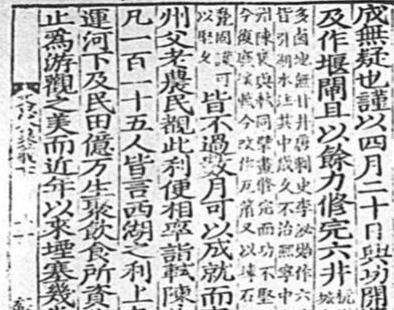 成無疑也謹以四月二十日興功開
及作堰閘且以餘力修完六井杭
城
多鹵地無甘井唐刺史李泌始作六
皆引湖水注其中歲久不治熙寧中
州陳襄與軾同擘畫修完而功不堅
今復廢壞軾今改作瓦筒又以塼石
甃固護可
以堅久
皆不過數月可以成就而
州父老農民覩此利便相率詣軾陳
凡一百一十五人皆言西湖之利上
運河下及民田億萬生聚飲食所資
止爲游觀之美而近年以來堙塞幾